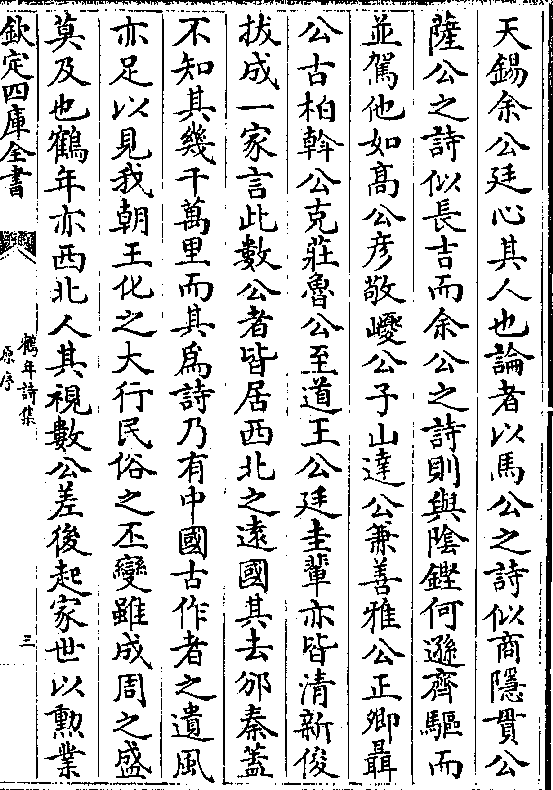 天錫余公廷心其人也論者以馬公之詩似商隱貫公
薩公之詩似長吉而余公之詩則與陰鏗何遜齊驅而
並駕他如髙公彦敬巙公子山達公兼善雅公正卿聶
公古柏斡公克莊魯公至道王公廷圭輩亦皆清新俊
拔成一家言此數公者皆居西北之逺國其去邠秦蓋
不知其幾千萬里而其爲詩乃有中國古作者之遺風
亦足以見我朝王化之大行民俗之丕變雖成周之盛
莫及也鶴年亦西北人其視數公差後起家世以勲業
欽定四庫全書
鶴年詩集
原序
三